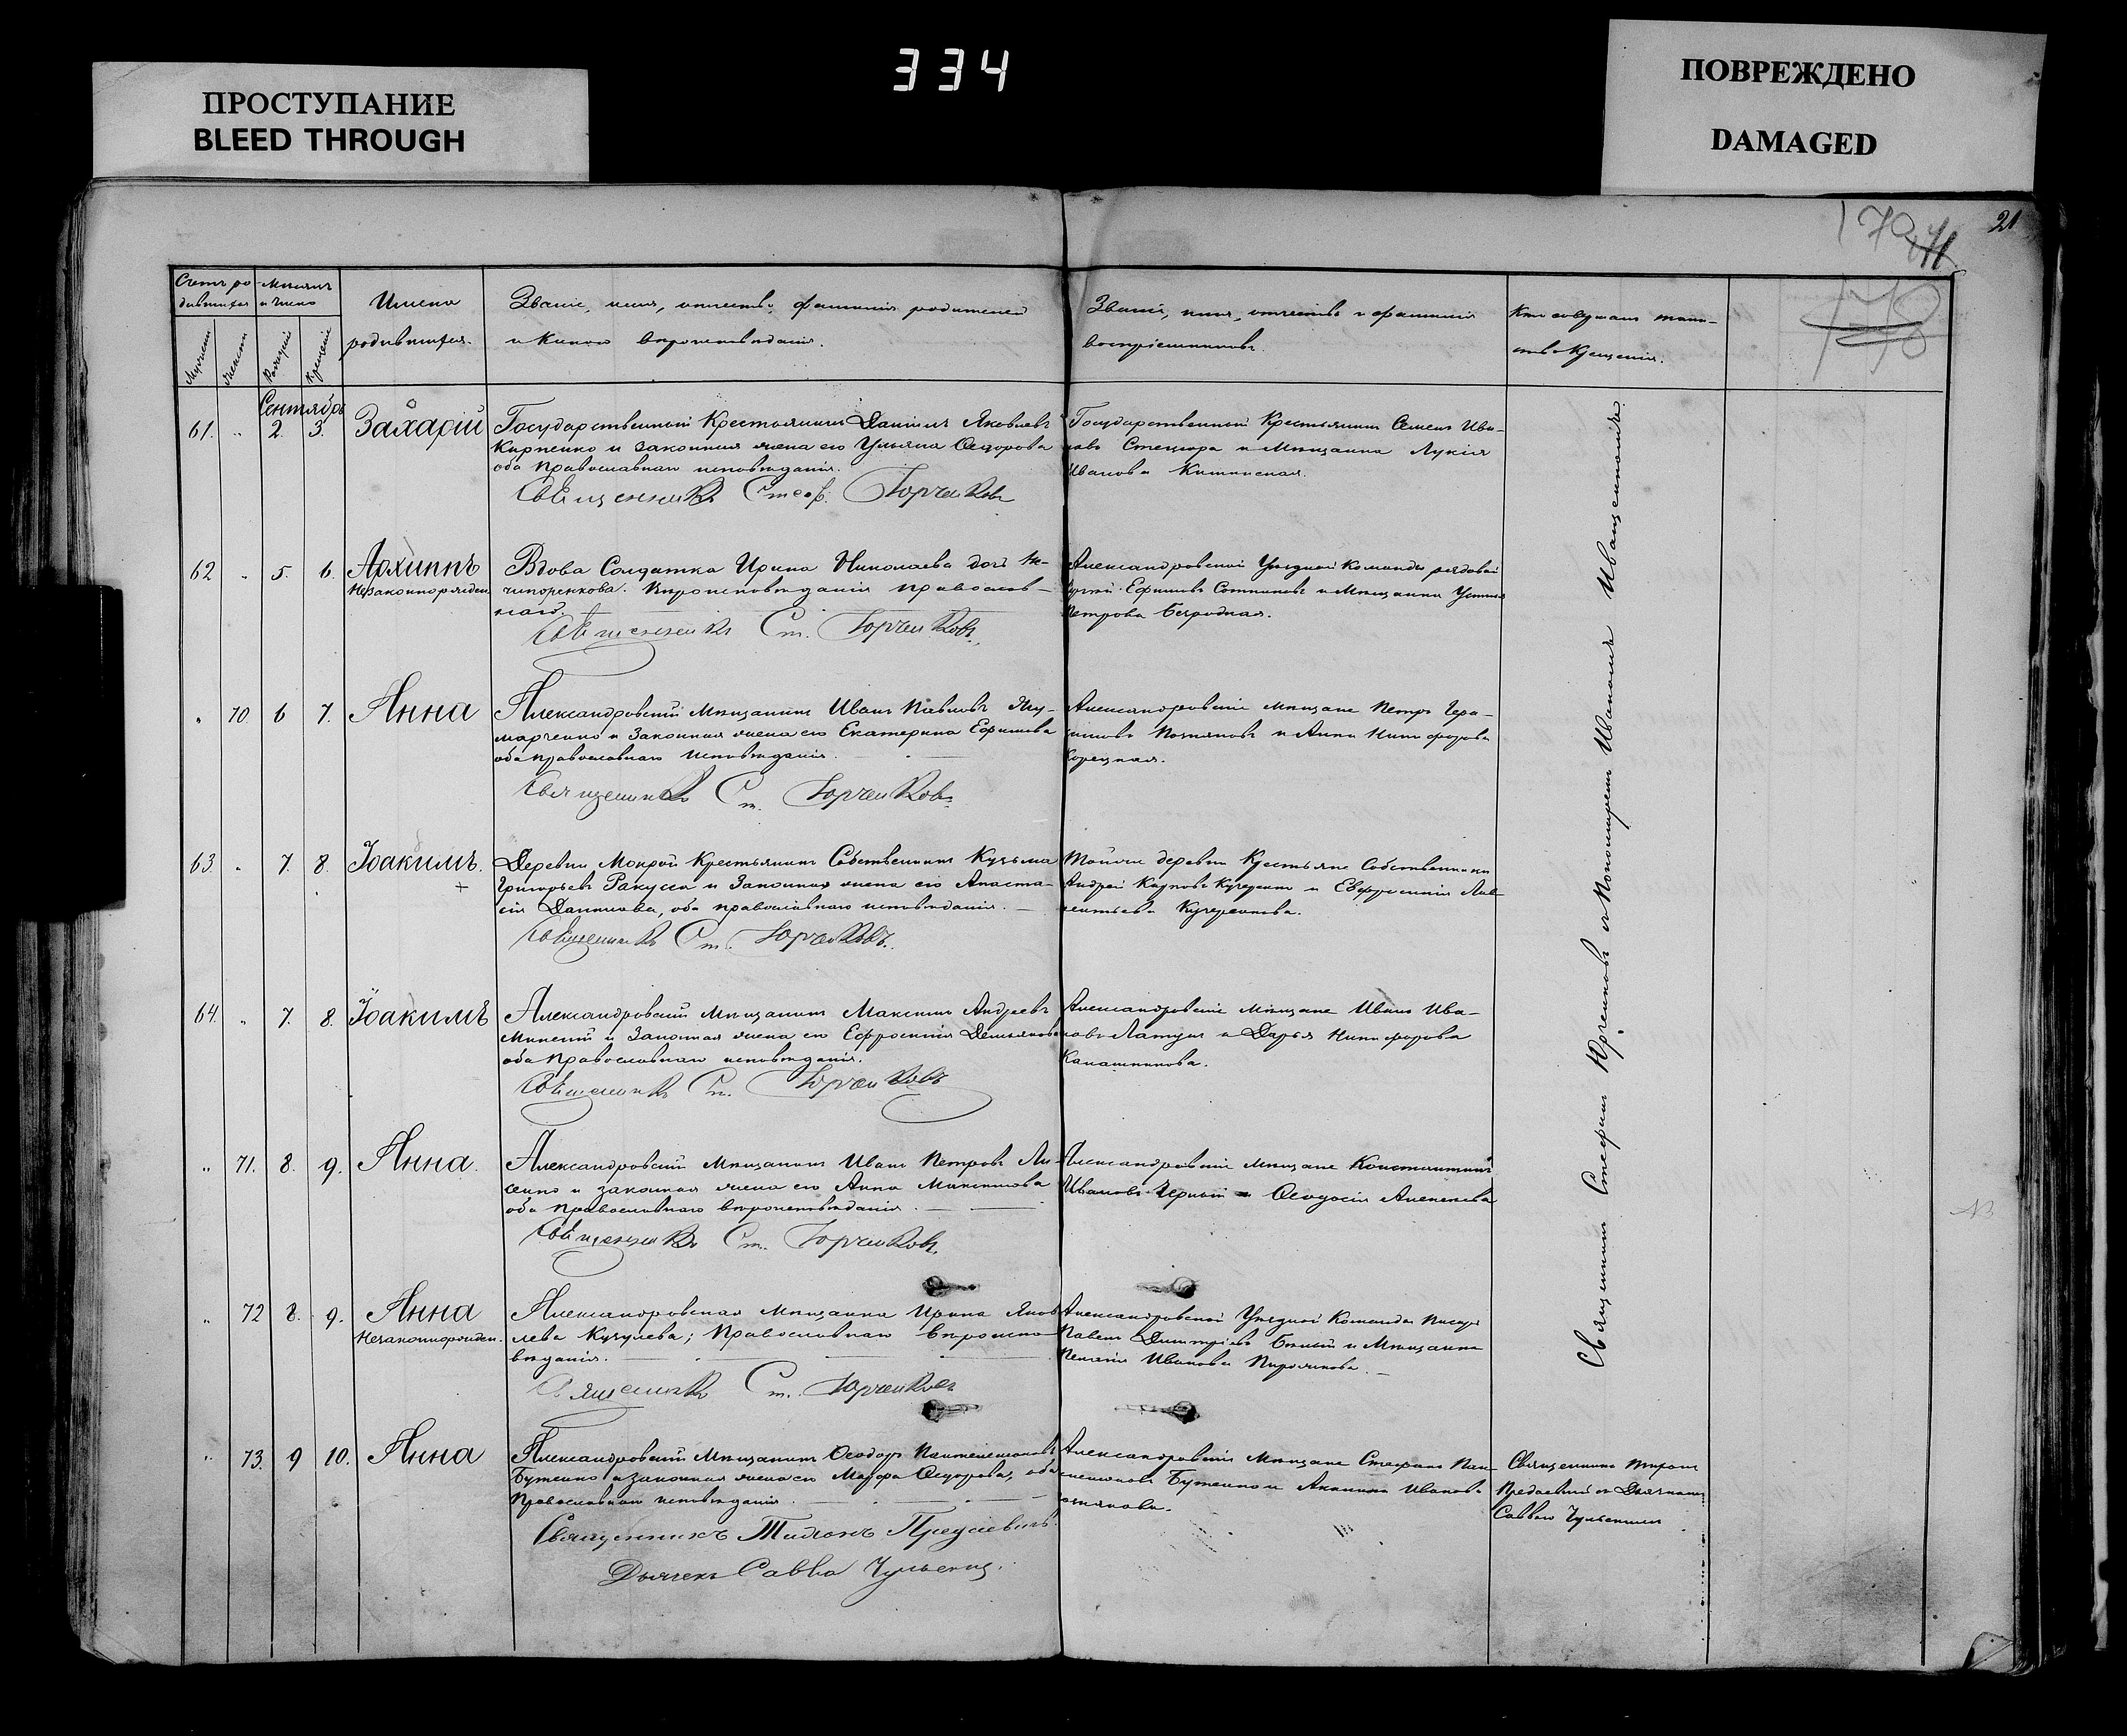 334
ПРОСТУПАНИЕ
BLEED THROUGH
ПОВРЕЖДЕНО
DAMAGED
21
Счетъ ро-
дившихся
Мѣсяцъ
и число
Имена
родившихся.
Званіе, имя, отчество, фамилія родителей
и какого вѣроисповѣданія.
Званіе, имя, отчество и фамилія
воспріемниковъ.
Кто совершалъ таин-
ство Крещенія.
Сентябрь
61. " 2. 3. Захарій
Государственный Крестьянинъ Даніилъ Яковлевъ
Карпенко и законная жена его Ульяна Ѳедорова
оба православнаго исповѣданія.
Священникъ Стеф. Юрченковъ
Государственный Крестьянинъ Семенъ Ива-
новъ Стецюра и Мѣщанка Лукія
Иванова
62 " 5. 6. Архиппъ
Незаконнорожден.
Вдова Солдатка Ирина Николаева дочь Не-
чипоренкова. Вѣроисповѣданія православ-
наго.
Священникъ Ст. Юрченковъ
Александровской Уѣздной Команды рядовой
Ефимовъ Сотниковъ и Мѣщанка
Петрова Безродная.
" 70 6 7. Анна
Александровскій Мѣщанинъ Иванъ Павловъ
и Законная жена его Екатерина Ефимова
оба православнаго исповѣданія.
Священникъ Ст. Юрченковъ
Александровскіе мѣщане Петръ Гера-
симовъ и Анна Никифорова
Корецкая.
63. " 7. 8. Іоакимъ.
Деревни Мокрой Крестьянинъ Собственникъ Кузьма
Григорьевъ Ракусса и Законная жена его Анаста-
сія Данилова, оба православнаго исповѣданія.
Священникъ Ст. Юрченковъ.
Тойже деревни Крестьяне Собственники
Андрей Карповъ и Евфросинія Лав-
рентьева Кучеренкова.
64. " 7. 8. Іоакимъ
Александровскій Мѣщанинъ Максимъ Андреевъ
и Законная жена его Ефросинія Демьянова
оба Православнаго исповѣданія.
Священникъ Ст. Юрченковъ
Александровскіе Мѣщане Иванъ Ива-
новъ Латунъ и Дарья Никифорова
Калашникова.
" 71. 8. 9. Анна.
Александровскій Мѣщанинъ Иванъ Петровъ Ли-
сенко и законная жена его Анна Максимова
оба Православнаго вѣроисповѣданія.
Священникъ Ст. Юрченковъ.
Александровскіе Мѣщане Константинъ
Ивановъ Черный и Ѳеодосія Алексѣева
" 72 8. 9. Анна
Незаконнорожден.
Александровская Мѣщанка Ирина Яков-
лева Православнаго вѣроиспо-
вѣданія.
Священникъ Ст. Юрченковъ
Александровской Уѣздной Команды Писарь
Павелъ Димитріевъ и Мѣщанка
Пелагія Иванова Пирожкова.
" 73. 9 10. Анна
Александровскій Мѣщанинъ Ѳеодоръ Пантелеймоновъ
Бутенко и законная жена его Марфа Ѳедорова, оба
Православнаго исповѣданія.
Священникъ Тихонъ
Дьячекъ Савва
Александровскіе Мѣщане Стефанъ Пан-
телеймоновъ Бутенко и Акилина Иванова
Священникъ
и Дьячкомъ
Саввою
Священникъ Стефанъ Юрченковъ съ Пономаремъ Иваномъ Иващенкомъ.